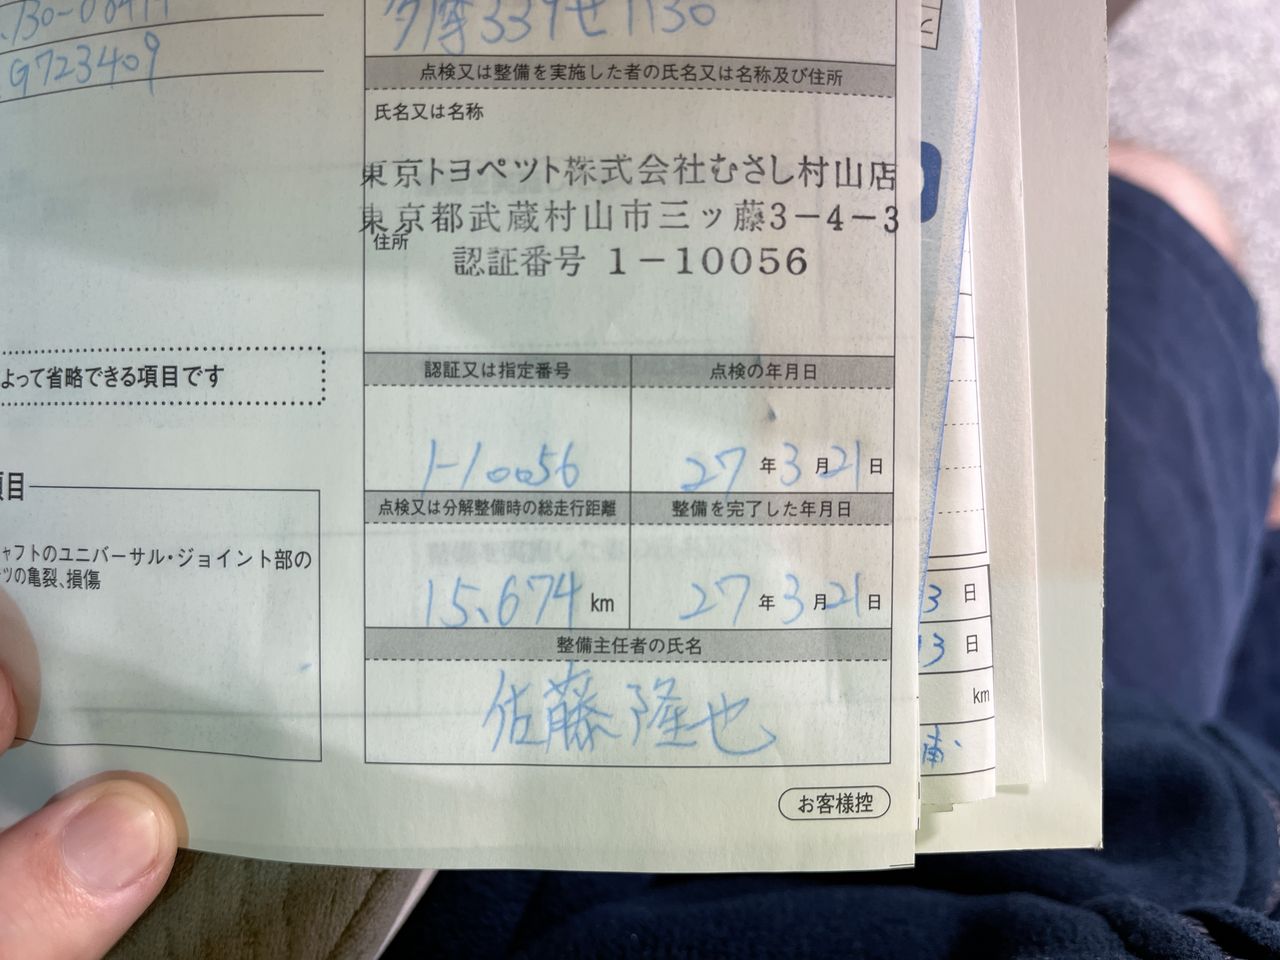 G723409
多摩339せ1130
点検又は整備を実施した者の氏名又は名称及び住所
氏名又は名称
東京トヨペット株式会社むさし村山店
東京都武蔵村山市三ッ藤3-4-3
住所
認証番号 1-10056
よって省略できる項目です
認証又は指定番号
点検の年月日
1-10056
27年3月21日
点検又は分解整備時の総走行距離
整備を完了した年月日
15,674 km
27年3月21日
整備主任者の氏名
佐藤隆也
項目
ャフトのユニバーサル・ジョイント部の
ツの亀裂、損傷
お客様控
3日
13日
km